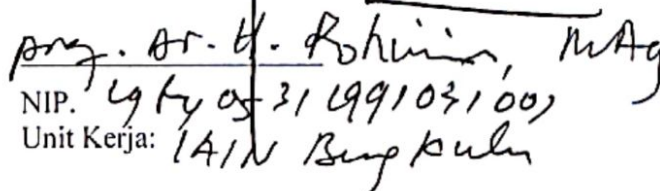 Prof. Dr. H. Rohimin, M.Ag
NIP. 19640531 199103 1 001
Unit Kerja: IAIN Bengkulu